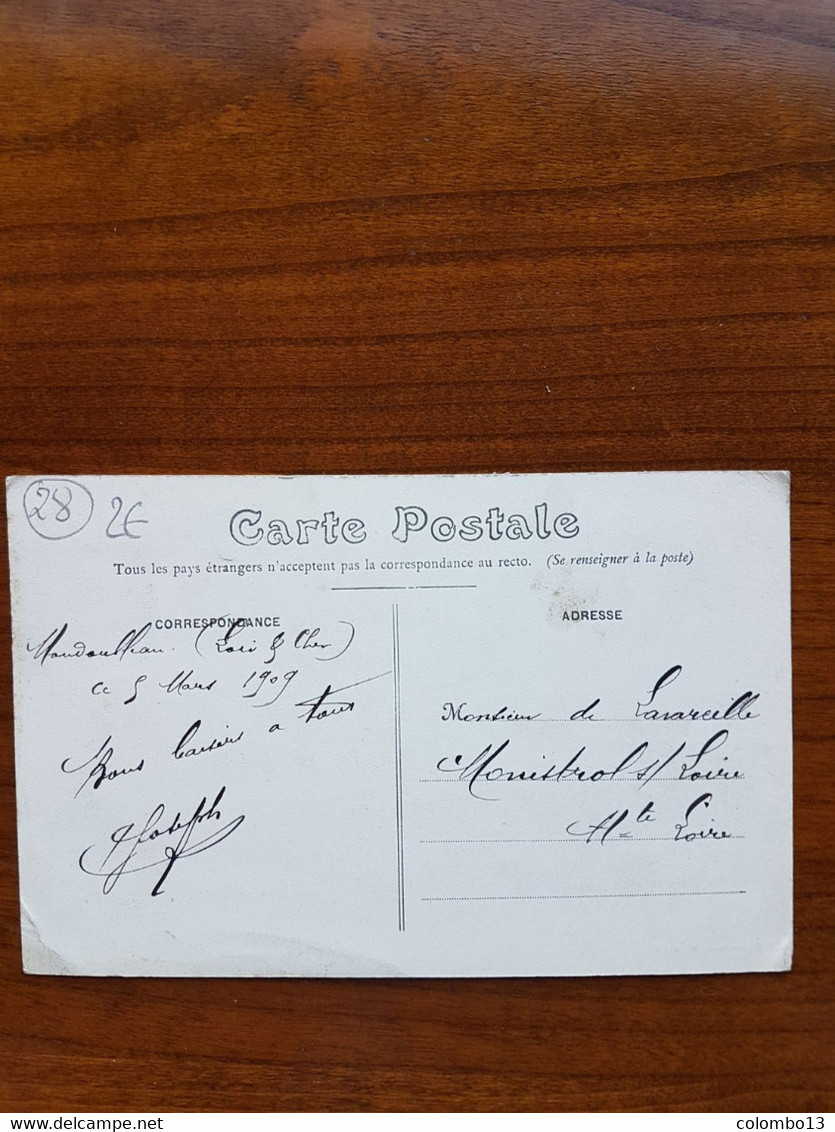 28 2€
Carte Postale
Tous les pays étrangers n'acceptent pas la correspondance au recto. (Se renseigner à la poste)
CORRESPONDANCE
Mondoubleau (Loir & Cher)
ce 5 Mars 1909
Bons baisers a tous
Joseph
ADRESSE
Monsieur de Lavareille
Monistrol s/ Loire
Hte Loire
delcampe.net
colombo13